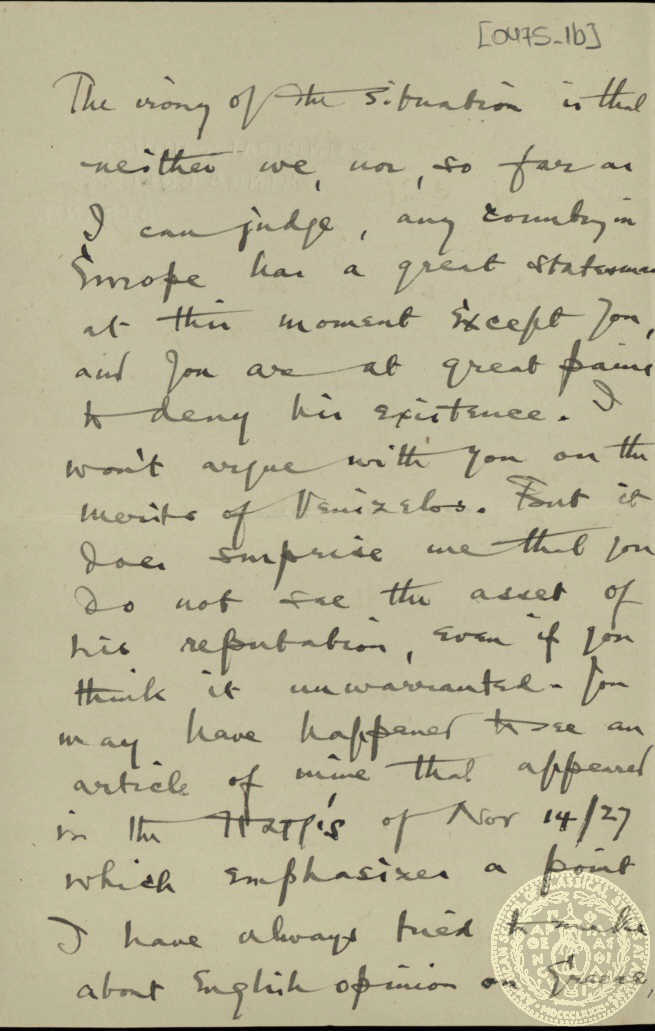 [0475-1b]
The irony of the situation is that
neither we, nor, so far as
I can judge, any country in
Europe has a great statesman
at this moment except you,
and you are at great pains
to deny his existence. I
won't argue with you on the
merits of Venizelos. But it
does surprise me that you
do not see the asset of
his reputation, even if you
think it unwarranted. You
may have happened to see an
article of mine that appeared
in the Πατρίς of Nov 14/27
which emphasizes a point
I have always tried to make
about English opinion on Greece,